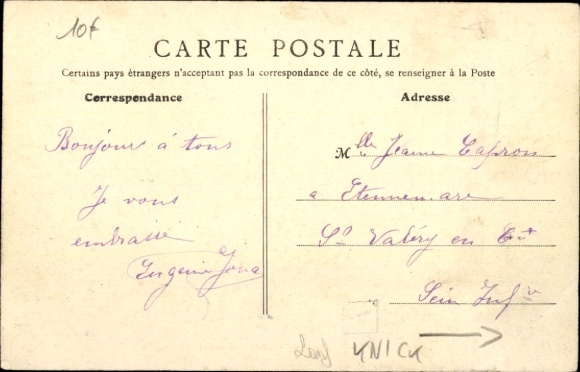 10f
CARTE POSTALE
Certains pays étrangers n'acceptant pas la correspondance de ce côté, se renseigner à la Poste
Correspondance
Adresse
Bonjour à tous
Je vous
embrasse
Eugenie
Mlle Jeanne Capron
a
St Valéry en Cau
Sein Infre
KNICK